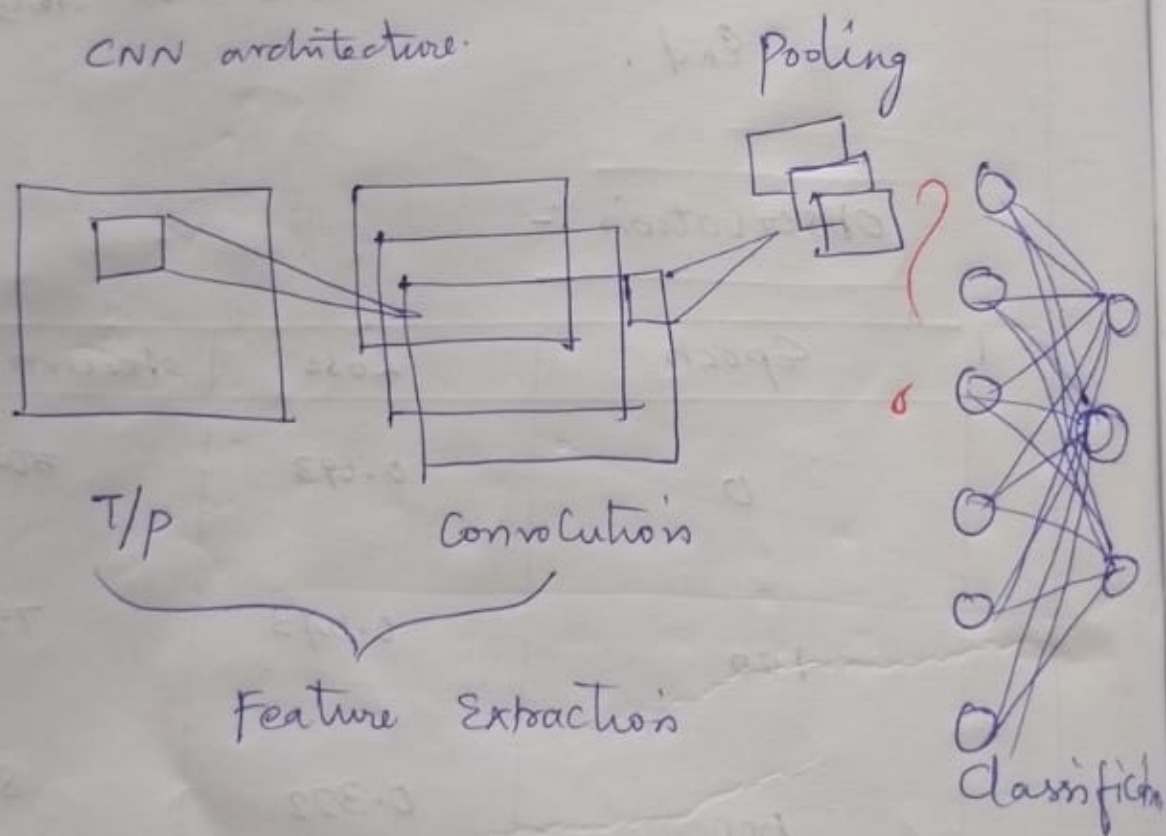 CNN architecture.
Pooling
I/p
Convolution
Feature Extraction
Classification